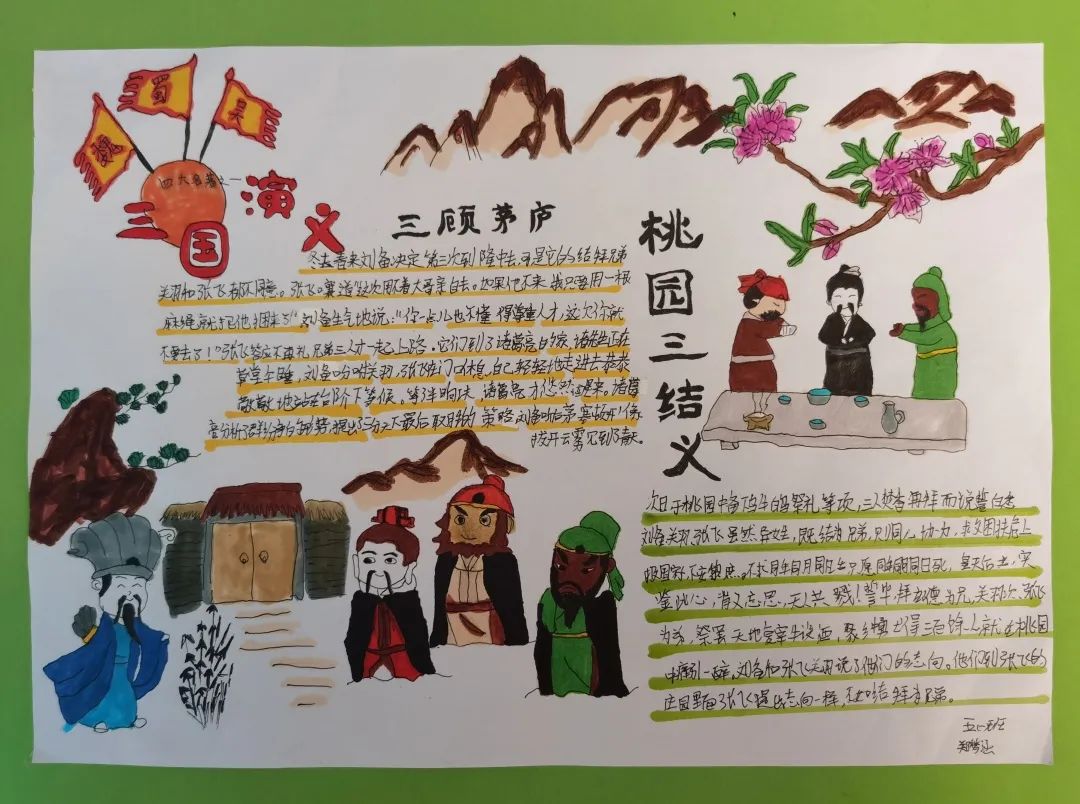 魏
蜀
吴
四大名著之一
三国演义
三顾茅庐
冬去春来刘备决定第三次到隆中去,可是它的结拜兄弟
关羽和张飞都不同意。张飞嚷道"这次用不着大哥亲自去。如果他不来,我只要用一根
麻绳就把他捆来了"刘备生气地说:"你一点儿也不懂得尊重人才,这次你就
不要去了!"张飞答应不再无礼兄弟三人才一起上路。它们到了诸葛亮的家,诸葛亮正在
草堂上睡,刘备吩咐关羽,张飞在门口休息,自己轻轻地走进去恭恭
敬敬地站在台阶下等候,等
诸葛亮才
诸葛
亮分析了群雄
提出了
最后取
的策略刘备听后茅塞
像
拨开云雾见到
桃园三结义
次日于桃园中备
乌牛白马祭礼等项,三人焚香再拜而说誓曰念
刘备关羽,张飞虽然异姓,既结为兄弟,则同心协力,救困扶危上
报国家下安黎庶。不求同年同月同日生只愿同年同月同日死,皇天后土,实
鉴此心,背义忘恩,天人共戮!誓毕,拜玄德为兄,关羽次,张飞
为弟,祭罢天地,宰牛设酒,聚乡
得三百
人就在桃园
中痛引一醉,刘备和张飞关羽说了他们的志向。他们到张飞的
庄园里
张飞提
志向一样,不如结拜为兄弟。
五
班